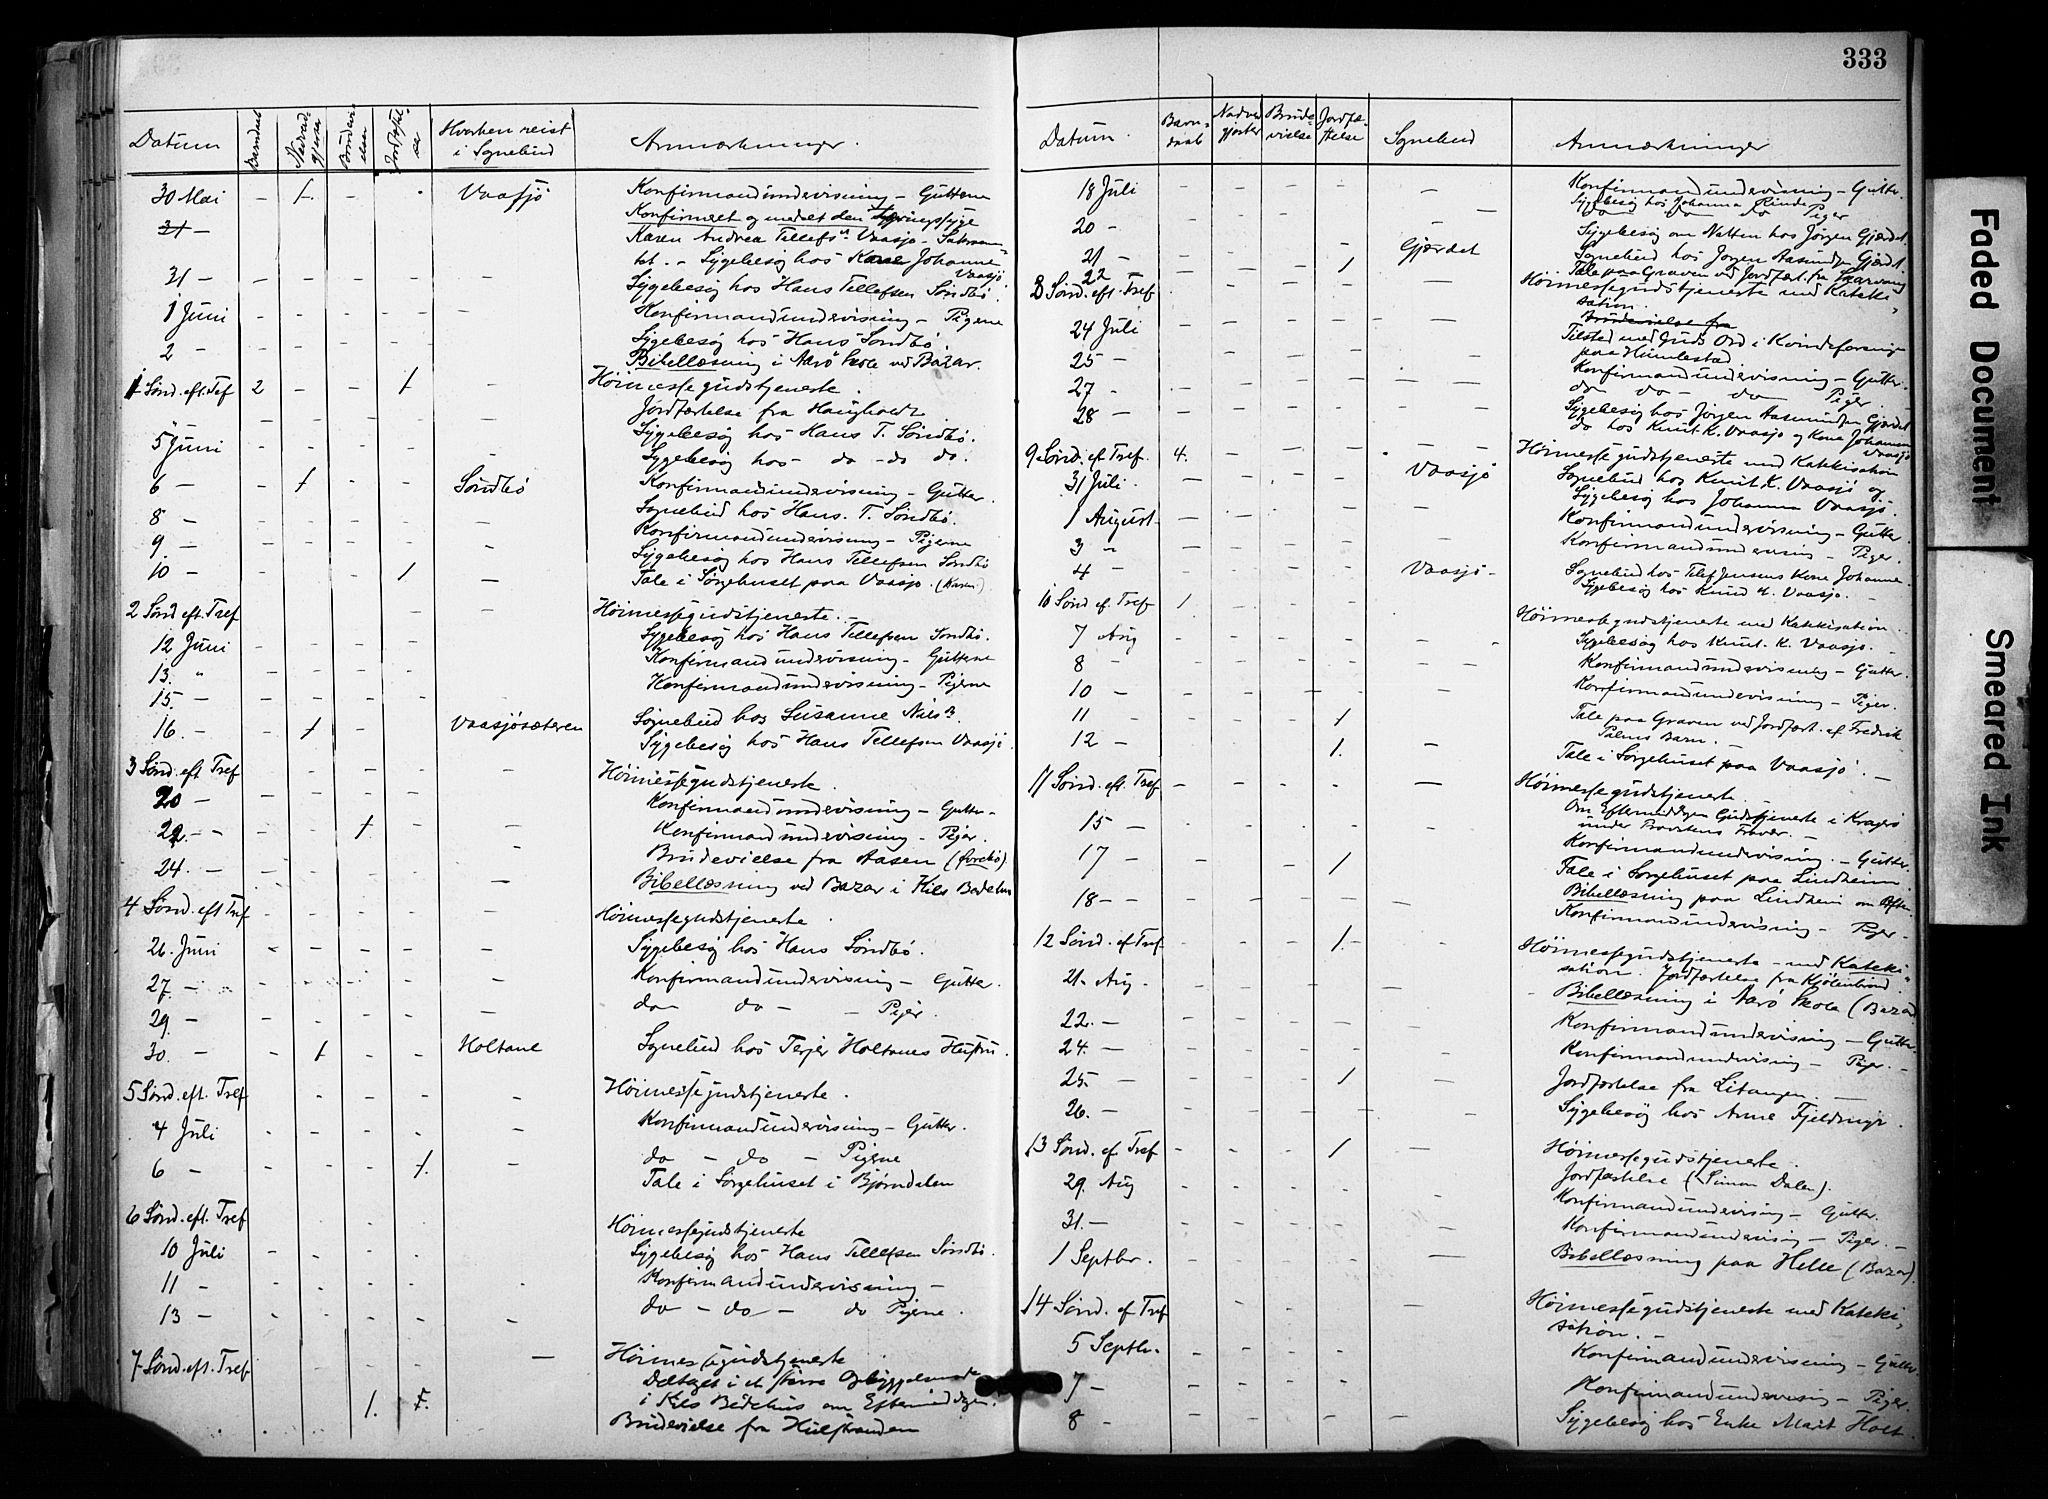 333
Datum Barndaab Nadvergjester Brudevielser Jordfæstelse Hvorhen reist i Sognebud Anmærkninger.
30 Mai - 1. - . Vaasjö Konfirmandundervisning - Guttene
31 - Konfirmeret og meddelt den
Karen Andrea Tellefs. Vaasjö - Sakramen
tet. - Sygebesøg hos Johanne Vaasjö
31 - Sygebesøg hos Hans Tellefsen Søndbö.
1 Juni Konfirmandundervisning - Pigerne
2 - Sygebesøg hos Hans Søndbö.
Bibellæsning i Aarö Skole ved Bazar.
1 Sønd. eft. Tref 2 - - 1 - Høimessegudstjeneste.
Jordfæstelse fra Haugholdt
Sygebesøg hos Hans T. Søndbö.
5 Juni Sygebesøg hos - do - do do.
6 - - 1 - - Søndbö Konfirmandundervisning - Gutter.
8 - Sognebud hos Hans. T. Søndbö.
9. - Konfirmandundervisning - Pigerne
Sygebesøg hos Hans Tellefsen Søndbö
10 - 1 - Tale i Sørgehuset paa Vaasjö. (Karen)
2 Sønd eft. Tref Høimessegudstjeneste. -
12 Juni Sygebesøg hos Hans Tellefsen Søndbö.
13. " Konfirmandundervisning - Guttene
15. - Konfirmandundervisning - Pigerne
16. - - 1 - Vaasjösæteren Sognebud hos Susanne Nils
Sygebesøg hos Hans Tellefsen Vaasjö.
3 Sønd. eft Tref Høimessegudstjeneste.
20 - Konfirmandundervisning - Gutter -
22. - - - 1 - Konfirmandundervisning - Piger.
24. - Brudevielse fra Aasen
Bibellæsning ved Bazar i Kils Bedehus
4 Sønd. eft Tref Høimessegudstjeneste.
26. Juni Sygebesøg hos Hans Søndbö.
27. - Konfirmandundervisning - Gutter.
29. - do do - - Piger.
30. - - 1 - - Holtane Sognebud hos Terjer Holtanes Hustru.
5 Sønd. eft. Tref Høimessegudstjeneste.
4 Juli Konfirmandundervisning - Gutter.
6 - 1. - do - do - Pigerne
Tale i Sørgehuset i Bjørndalen
6 Sønd. eft. Tref Høimessegudstjeneste
10 Juli Sygebesøg hos Hans Tellefsen Søndbö.
11 - Konfirmandundervisning -
13 - do - do - do Pigerne.
7 Sønd. eft. Tref Høimessegudstjeneste
Deltaget i et større Opbyggelsesmøde
1. i Kils Bedehus om Eftermiddagen.
Brudevielse fra Hulstranden
Datum. Barndaab Nadvergjester Brudevielse Jordfæstelse Sognebud Anmærkninger
18 Juli Konfirmandundervisning - Gutter.
Sygebesøg hos Johanna
20 - do do do Piger
21 - Gjærdet Sygebesøg om Natten hos Jørgen Gjærdet.
Sognebud hos Jørgen Aasmundsen Gjærdet.
22 1 - Tale paa Graven ved Jordfæst. fra
8 Sønd. eft. Tref Høimessegudstjeneste med Kateki
sation.
Brudevielse fra
24 Juli Tilsted med Guds Ord i Kvindeforening
25 - paa Humlestad.
Konfirmandundervisning - Gutter.
27 - do - do - do Piger.
28 - Sygebesøg hos Jørgen Aasmundsen Gjærdet
do hos Knut K. Vaasjö og Kone Johanne Vaasjö
9 Sønd. ef Tref. 4. Høimessegudstjeneste med Katekisation
31 Juli. Vaasjö Sognebud hos Knut K. Vaasjö og
Sygebesøg hos Johanna Vaasjö.
1 August - Konfirmandundervisning - Gutter.
3 - Konfirmandundervisning - Piger.
4 - Vaasjö - Sognebud hos Tellef Jensens Kone Johanne.
Sygebesøg hos Knud K. Vaasjö.
10 Sønd ef. Tref 1. Høimessegudstjeneste med Katekisation
7 Aug Sygebesøg hos Knut. K. Vaasjö.
8 - Konfirmandundervisning - Gutter.
10 - Konfirmandundervisning - Piger.
11 - 1 Tale paa Graven ved Jordfæst. af Fredrik
Palms Barn. -
12 - 1. - Tale i Sørgehuset paa Vaasjö. -
11 Sønd. eft. Tref Høimessegudstjeneste
15 - Om Eftermiddagen Gudstjeneste i Kragerö
under Provstens Fravær. -
Konfirmandundervisning. - Gutter.
17 - 1 Tale i Sørgehuset paa Lindheim.
18 - - Bibellæsning paa Lindheim om Aften.
Konfirmandundervisning - Piger -
12 Sønd. ef Tref 1. - Høimessegudstjeneste - med Kateki
sation. Jordfæstelse fra Kjölebrönd
21. Aug. Bibellæsning i Aarö Skole (Bazar)
22. - Konfirmandundervisning - Gutter.
24. - Konfirmandundervisning - Piger. -
25. - 1 - Jordfæstelse fra Litangen -
26. - Sygebesøg hos Anne Fjeldmyr.
13 Sønd. ef Tref 1 - Høimessegudstjeneste.
29. Aug Jordfæstelse (Simon Dalen).
Konfirmandundervisning - Gutter.
31. - Konfirmandundervisning - Piger. -
1 Septbr. Bibellæsning paa Helle (Bazar).
14 Sønd. ef Tref Høimessegudstjeneste med Kateki
sation. -
5 Septbr. Konfirmandundervisning - Gutter.
7 - Konfirmandundervisning - Piger.
8 - Sygebesøg hos Enke Marit Holt.
Faded Document
Smeared Ink